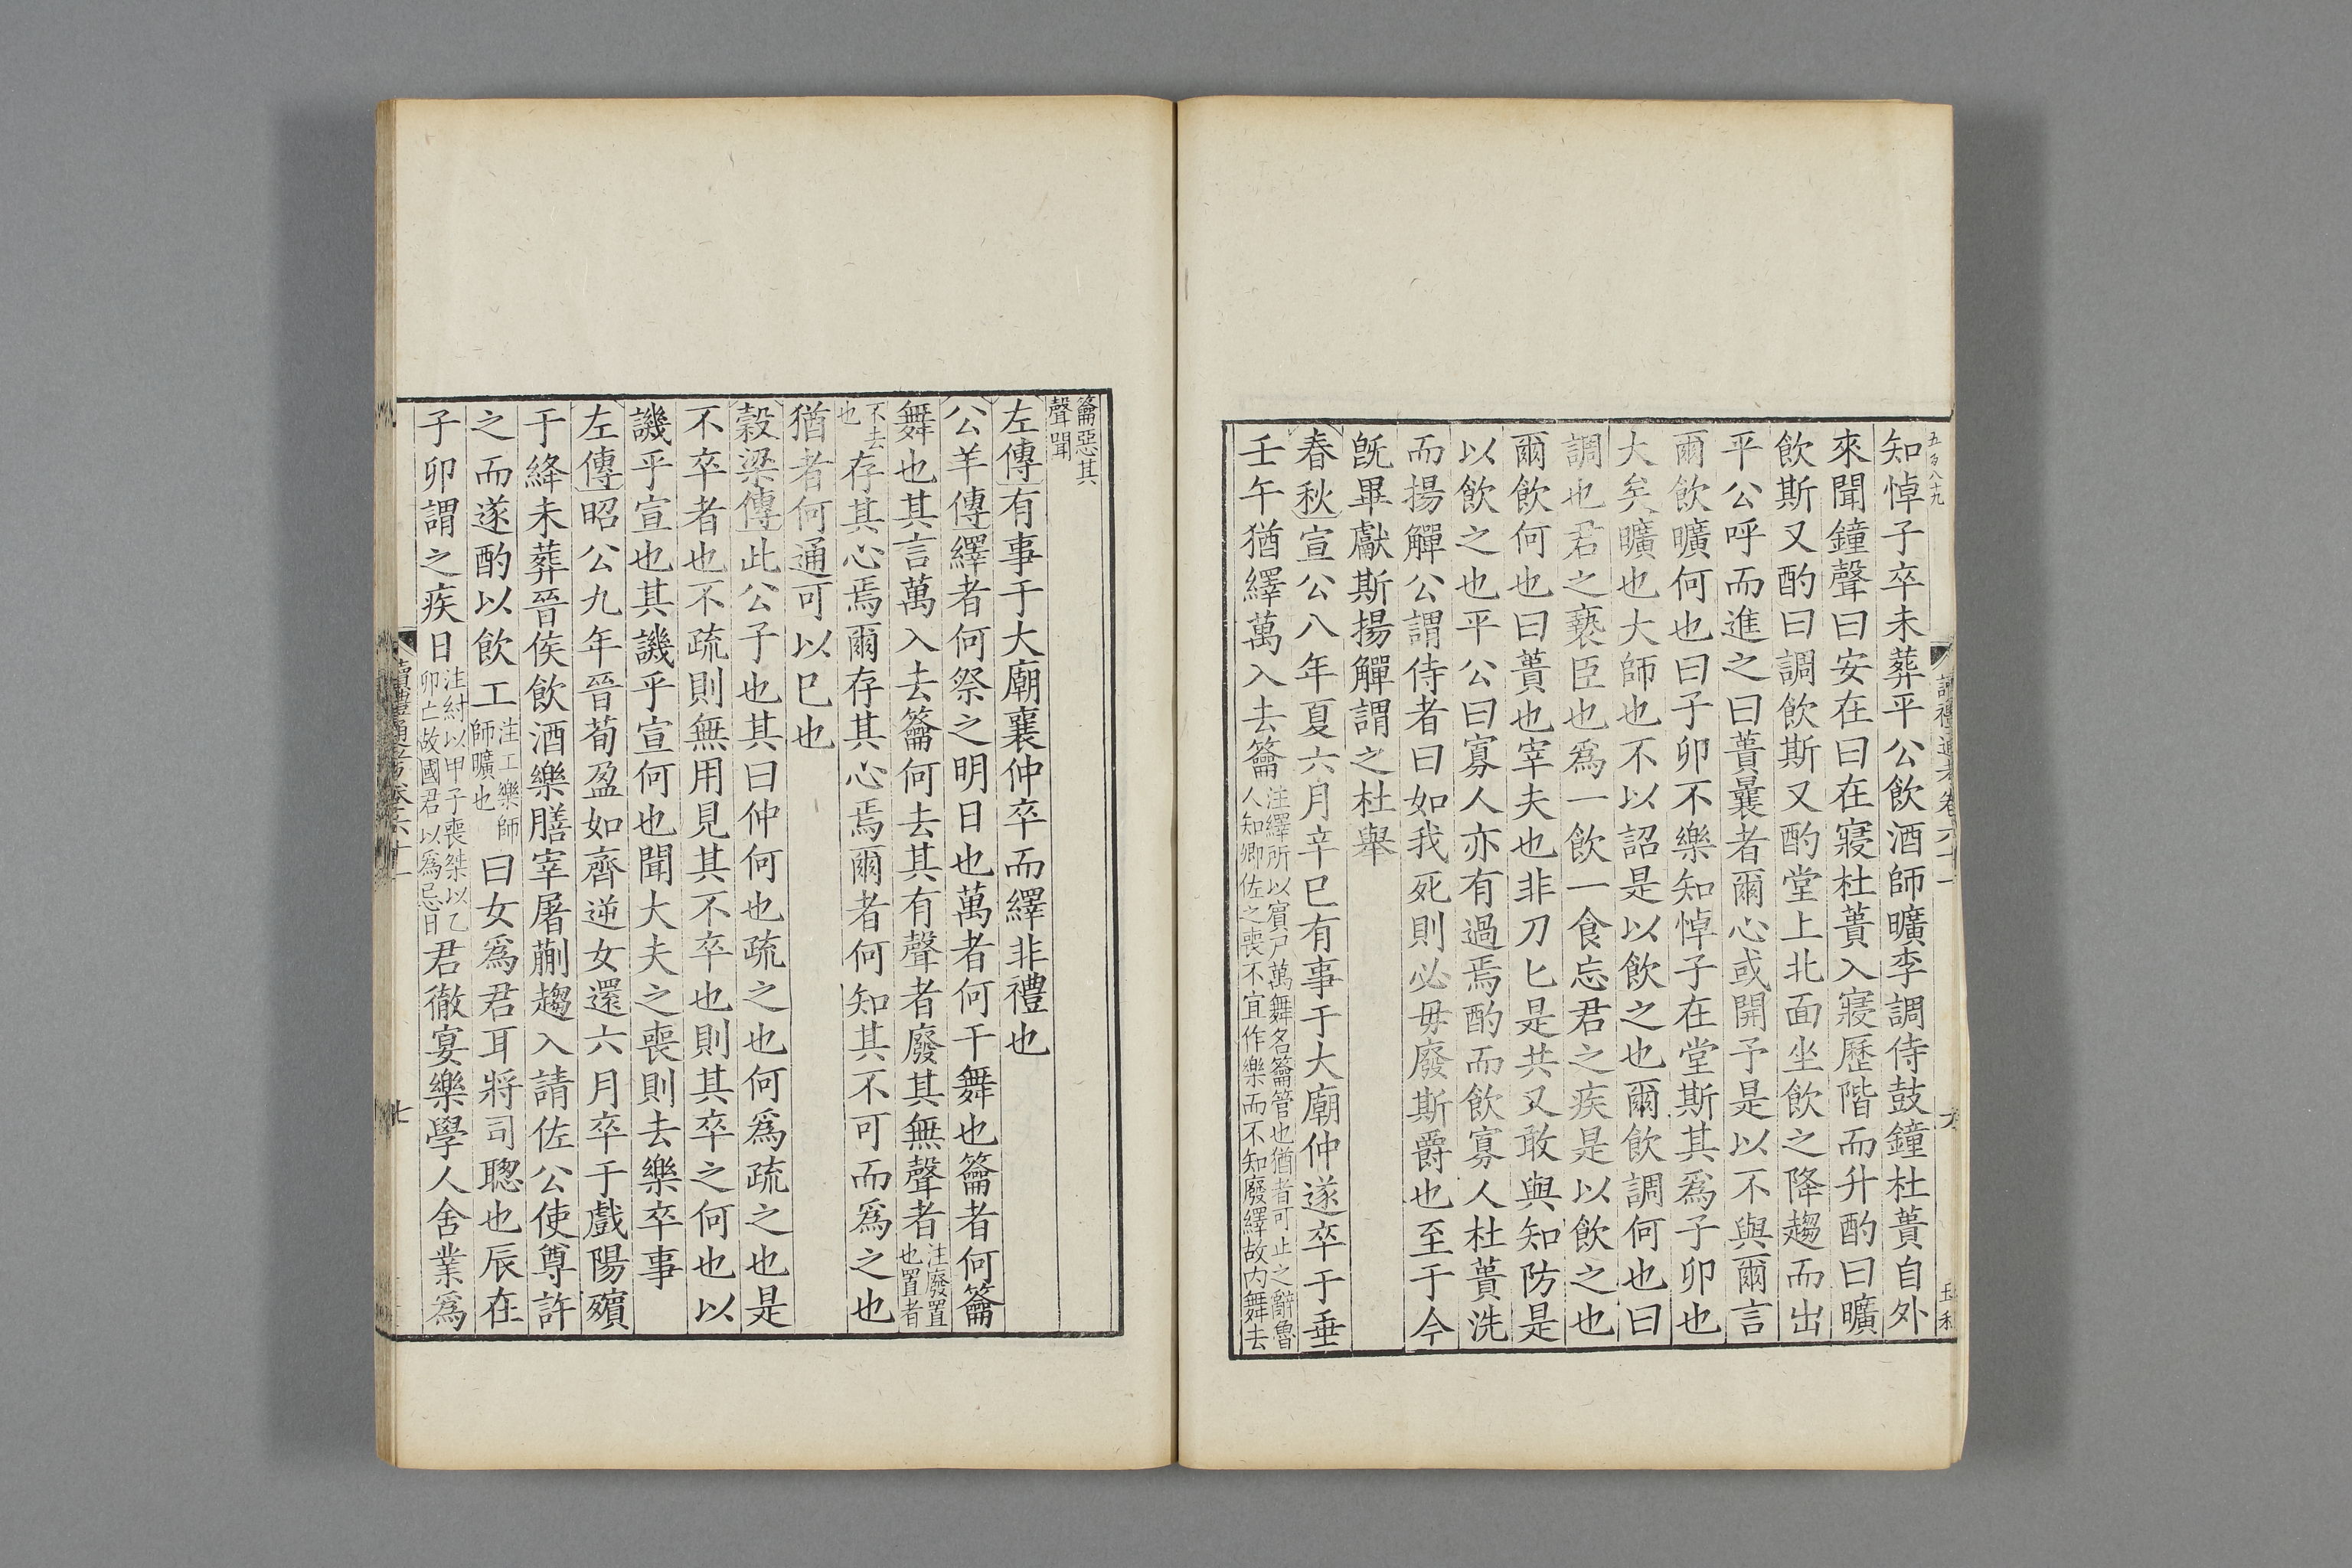 五百八十九
知悼子卒未葬平公飲酒師曠李調侍鼓鐘杜蕢自外
來聞鐘聲曰安在曰在寢杜蕢入寢歷階而升酌曰曠
飲斯又酌曰調飲斯又酌堂上北面坐飲之降趨而出
平公呼而進之曰蕢曩者爾心或開予是以不與爾言
爾飲曠何也曰子卯不樂知悼子在堂斯其爲子卯也
大矣曠也大師也不以詔是以飲之也爾飲調何也曰
調也君之褻臣也爲一飲一食忘君之疾是以飲之也
爾飲何也曰蕢也宰夫也非刀匕是共又敢與知防是
以飲之也平公曰寡人亦有過焉酌而飲寡人杜蕢洗
而揚觶公謂侍者曰如我死則必毋廢斯爵也至于今
旣畢獻斯揚觶謂之杜舉
春秋宣公八年夏六月辛巳有事于大廟仲遂卒于垂
壬午猶繹萬入去籥注繹所以賓尸萬舞名籥管也猶者可止之辭魯
人知卿佐之喪不宜作樂而不知廢繹故内舞去
籥惡其
聲聞
左傳有事于大廟襄仲卒而繹非禮也
公羊傳繹者何祭之明日也萬者何干舞也籥者何籥
舞也其言萬入去籥何去其有聲者廢其無聲者注廢置
也置者
不去
也存其心焉爾存其心焉爾者何知其不可而爲之也
猶者何通可以已也
穀梁傳此公子也其曰仲何也疏之也何爲疏之也是
不卒者也不疏則無用見其不卒也則其卒之何也以
譏乎宣也其譏乎宣何也聞大夫之喪則去樂卒事
左傳昭公九年晉荀盈如齊逆女還六月卒于戲陽殯
于絳未葬晉侯飲酒樂膳宰屠蒯趨入請佐公使尊許
之而遂酌以飲工注工樂師
師曠也曰女爲君耳將司聰也辰在
子卯謂之疾日注紂以甲子喪桀以乙
卯亡故國君以爲忌日君徹宴樂學人舍業爲
讀禮通考卷六十一
七